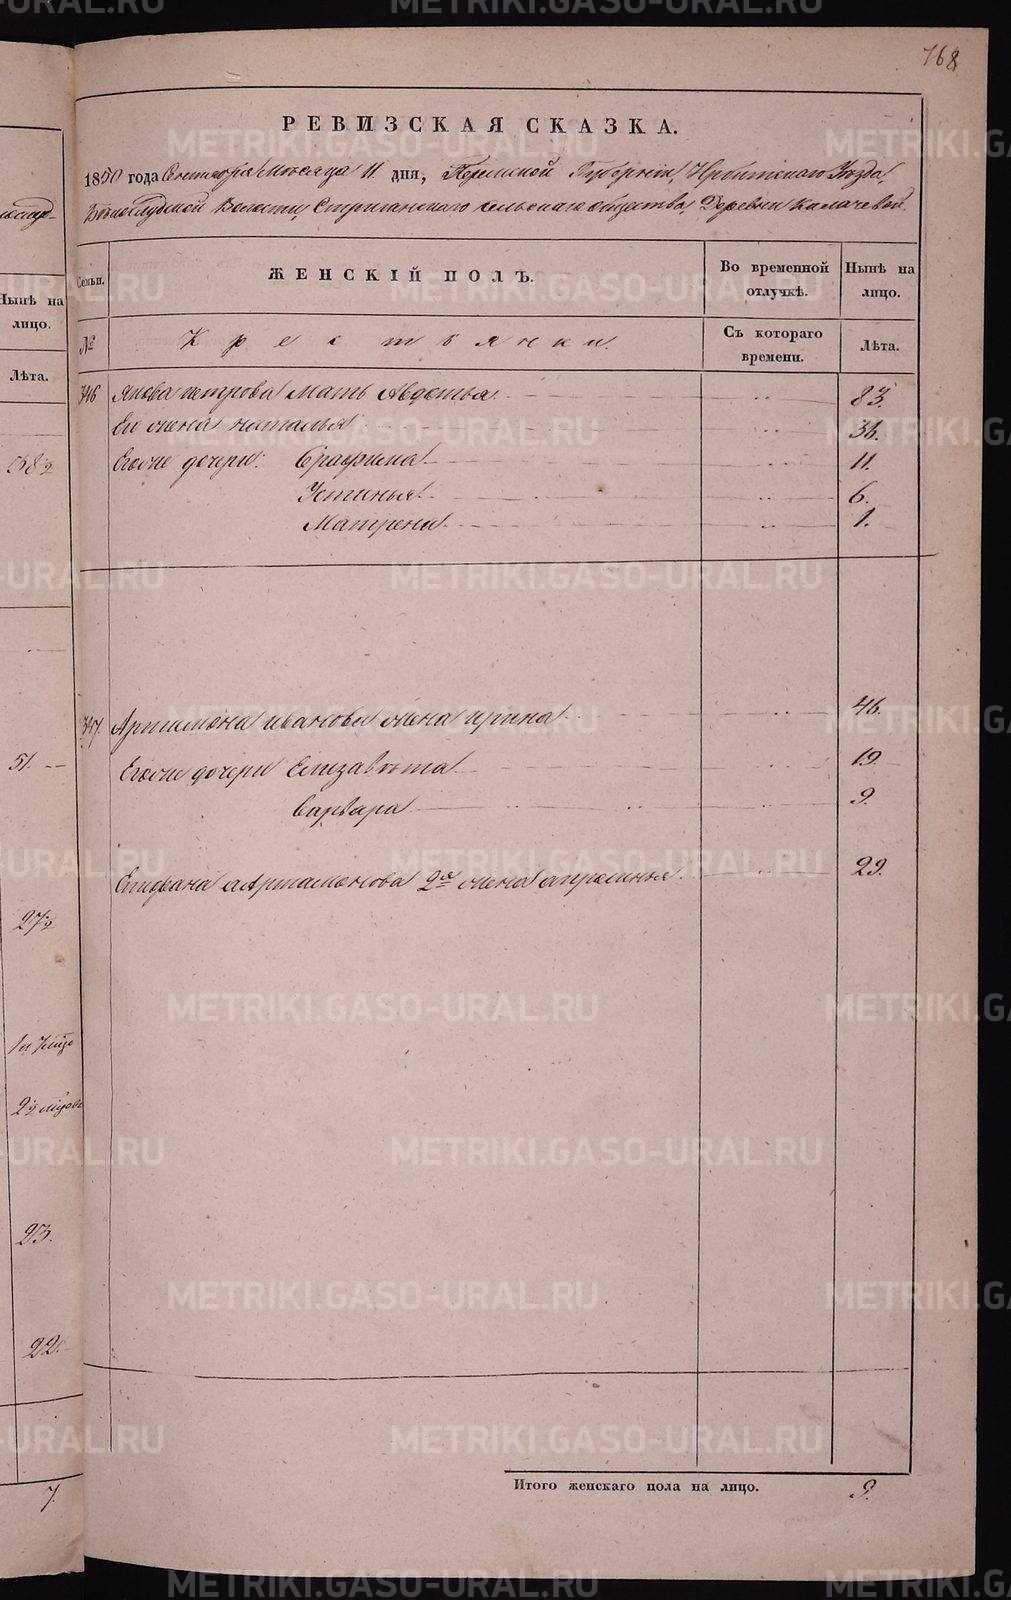 168
РЕВИЗСКАЯ СКАЗКА.
1850 года Сентября Месяца 11 дня, Пермской Губернии, Ирбитскаго Уезда,
Белослудской Волости Стриганскаго сельскаго общества, Деревни Калачевой.
Семьи.
ЖЕНСКІЙ ПОЛЪ.
Во временной отлучкѣ.
Нынѣ на лицо.
№
Крестьянки.
Съ котораго времени.
Лѣта.
346 Якова петрова мать Авдотья 83.
Ево жена наталья
Егоже дочери: Ефросинья 11.
Устинья 6.
Матрена 1.
347 Артамона иванова жена ирина 46.
Егоже дочери Елизавета 19
Варвара 9.
Епифана Артамонова 2я жена апросинья 29.
Итого женскаго пола на лицо. 9.
Нынѣ на лицо.
Лѣта.
58½
51.
27½
23.
22.
7.
METRIKI.GASO-URAL.RU